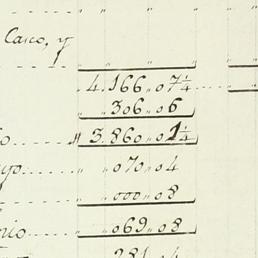 Casco, y
4.166 " 0 7 1/4
" 306 " 0 6
o " 3.860 " 0 1 1/4
yo " 070 " 0 4
" 000 " 0 8
rio " 069 " 0 8
281 " 4